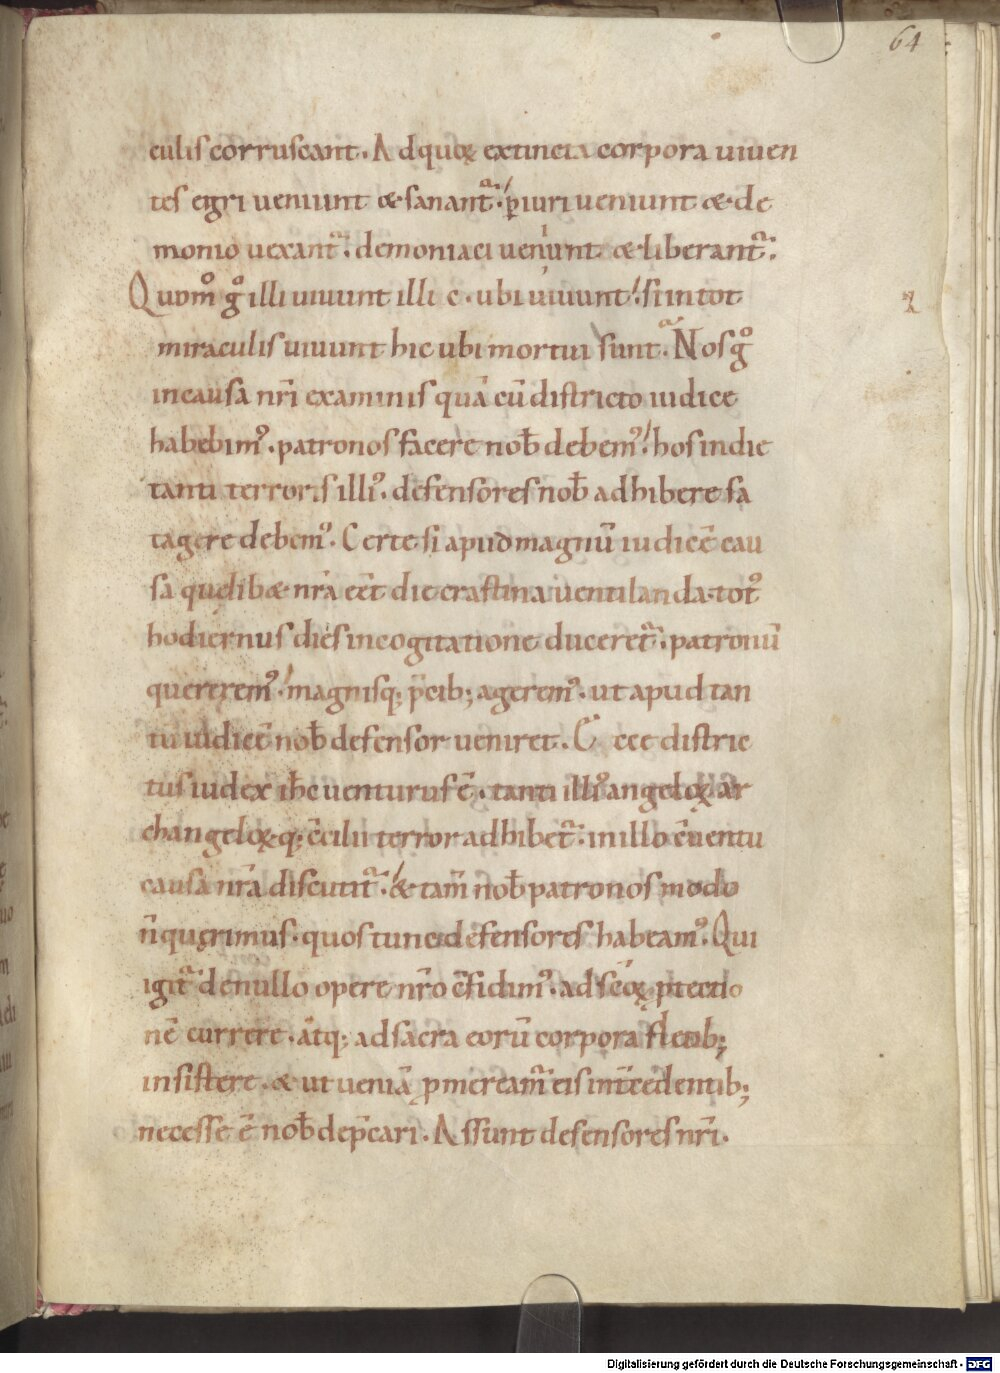 64
culis corruscant. Ad quoꝝ extincta corpora uiuen
tes egri ueniunt & sanant᷑. ꝑiuri ueniunt & de
monio uexant᷑. demoniaci ueniunt & liberant᷑.
Quom̊ g̊ illi uiuunt illic. ubi uiuunt. si in tot
miraculis uiuunt hic ubi mortui sunt. Nos g̊
in causa nr̄i examinis quā cū districto iudice
habebimꝰ. patronos facere nob̄ debemꝰ. hos in die
tanti terroris illiꝰ. defensores nob̄ adhibere sa
tagere debemꝰ. Certe si apud magnū iudicē cau
sa quęlib& nr̄a eēt die crastina uentilanda. totꝰ
hodiernus dies in cogitatione duceret᷑. patronū
quereremꝰ. magnisq; p̄cib; ageremꝰ. ut apud tan
tū iudicē nob̄ defensor ueniret. Ecce distric
tus iudex ih̄c uenturus ē. tanti illiꝰ angeloꝝ ar
changeloꝝq; c̄cilii terror adhibet᷑. in illo c̄uentu
causa nr̄a discutit᷑. & tam̄ nob̄ patronos modo
n̄ querimus. quos tunc defensores habeamꝰ. Qui
igit᷑ de nullo opere nr̄o c̄fidimꝰ. ad sc̄oꝝ ꝓtectio
nē currere. atq; ad sacra eorū corpora fletib;
insistere. & ut ueniā ꝓmeream᷑ eis int̄cedentib;
necesse ē nob̄ dep̄cari. Assunt defensores nr̄i.
Digitalisierung gefördert durch die Deutsche Forschungsgemeinschaft - DFG